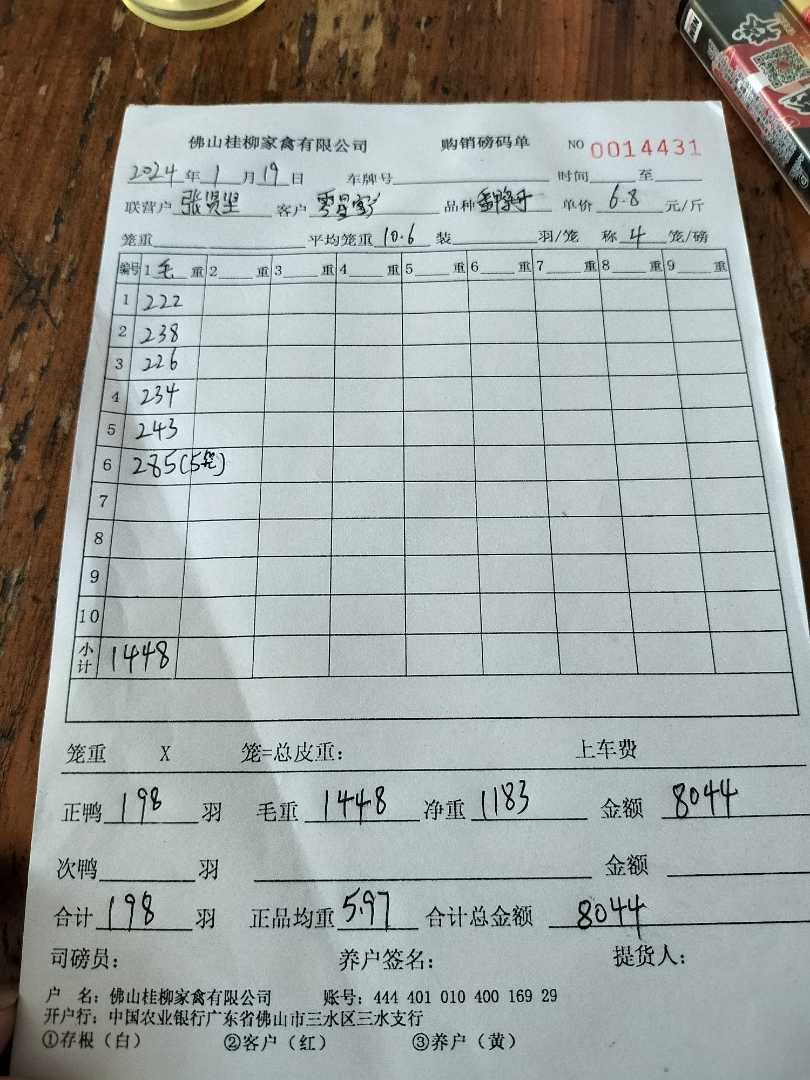 佛山桂柳家禽有限公司 购销磅码单 NO 0014431
2024年1月19日 车牌号 时间 至
联营户 张贤坚 客户 品种 单价 6.8 元/斤
笼重 平均笼重 10.6 装 羽/笼 称 4 笼/磅
编号 1 毛 重 2 重 3 重 4 重 5 重 6 重 7 重 8 重 9 重
1 222
2 238
3 226
4 234
5 243
6 285(5笼)
7
8
9
10
小计 1448
笼重 X 笼=总皮重: 上车费
正鸭 198 羽 毛重 1448 净重 1183 金额 8044
次鸭 羽 金额
合计 198 羽 正品均重 5.97 合计总金额 8044
司磅员: 养户签名: 提货人:
户 名: 佛山桂柳家禽有限公司 账号: 444 401 010 400 169 29
开户行: 中国农业银行广东省佛山市三水区三水支行
①存根（白） ②客户（红） ③养户（黄）